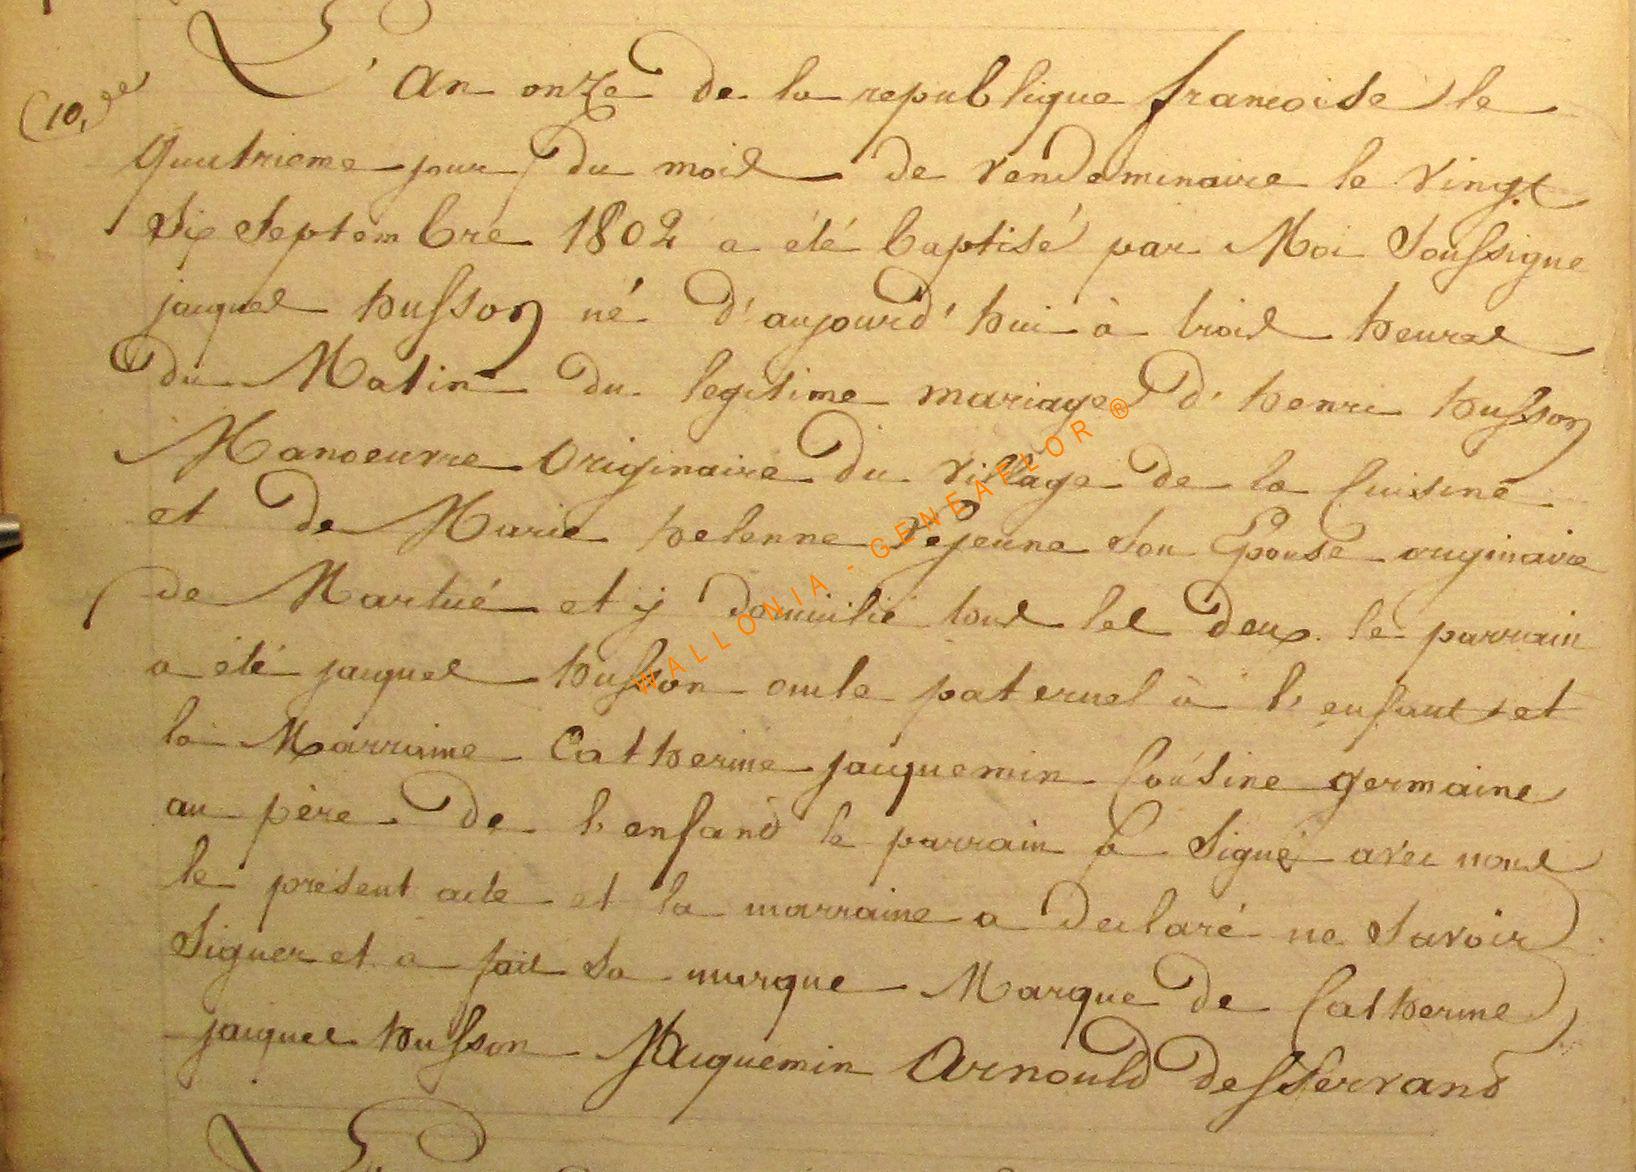 L'an onze de la republique francoise le
(10,
quatrieme jour du mois de vendeminaire le vingt
six septembre 1802 a été baptisé par Moi soussigne
jacques husson né d'aujourd'hui à trois heures
du Matin du legitime mariage d'henri husson
Manoeuvre originaire du village de la cuisine
et de Marie helenne Lejeune son Epouse originaire
de Martué et y domicilié tous les deux. le parrain
a été jacques husson oncle paternel à l'enfant et
la Marraine Catherine jacquemin Cousine germaine
au père de l'enfand le parrain a signé avec nous
le présent acte et la marraine a declaré ne savoir
signer et a fait sa marque Marque de Catherine
jacques husson Jacquemin Arnould desservand
WALLONIA - GENEAFLOR ®